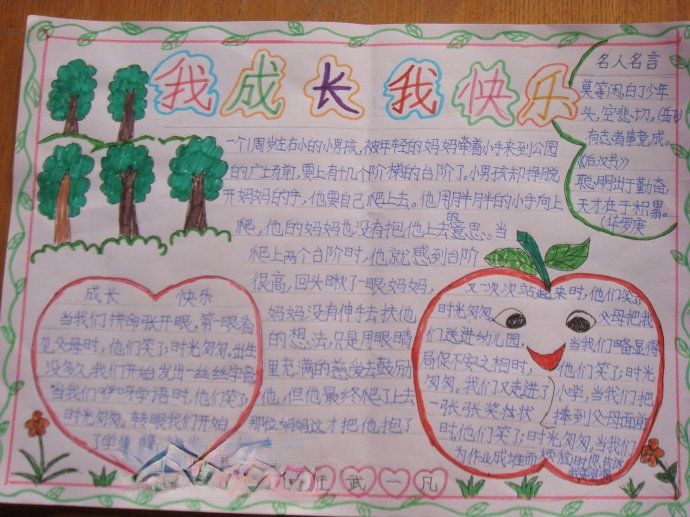 我成长我快乐
名人名言
莫等闲,白了少年
头,空悲切。(岳飞)
有志者事竟成。
《后汉书》
聪明出于勤奋,
天才在于积累。
(华罗庚
一个1周岁左右小的小男孩,被年轻的妈妈牵着小手来到公园
的广场前,要上有十几个阶梯的台阶了。小男孩却挣脱
开妈妈的手,他要自己爬上去。他用胖胖的小手向上
爬,他的妈妈也没有抱他上去的意思。当
爬上两个台阶时,他就感到台阶
很高,回头瞅了一眼妈妈,
妈妈没有伸手去扶他
的想法,只是用眼睛
里充满的慈爱去鼓励
他,但他最终爬了上去
那位妈妈这才把他抱了
成长 快乐
当我们拼命张开眼,第一眼看
见父母时,他们笑了;时光匆匆,出生
没多久,我们开始发出一丝丝字音
当我们咿呀学语时,他们笑了;
时光匆匆。转眼我们开始
了学
又一次次站起来时,他们笑了
时光匆匆,父母把我
们送进幼儿园,当我们略显得
局促不安之相时,他们笑了;时光
匆匆,我们又走进了小学,当我们把
一张张奖状捧到父母面前
时,他们笑了;时光匆匆,当我们
为作业成堆而烦恼时,您告诉
武一凡